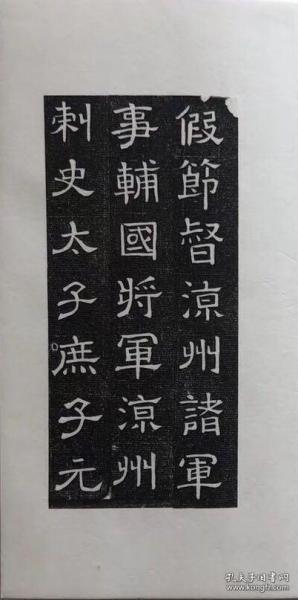 假節督涼州諸軍
事輔國將軍涼州
刺史太子庶子元
孔夫子旧书网